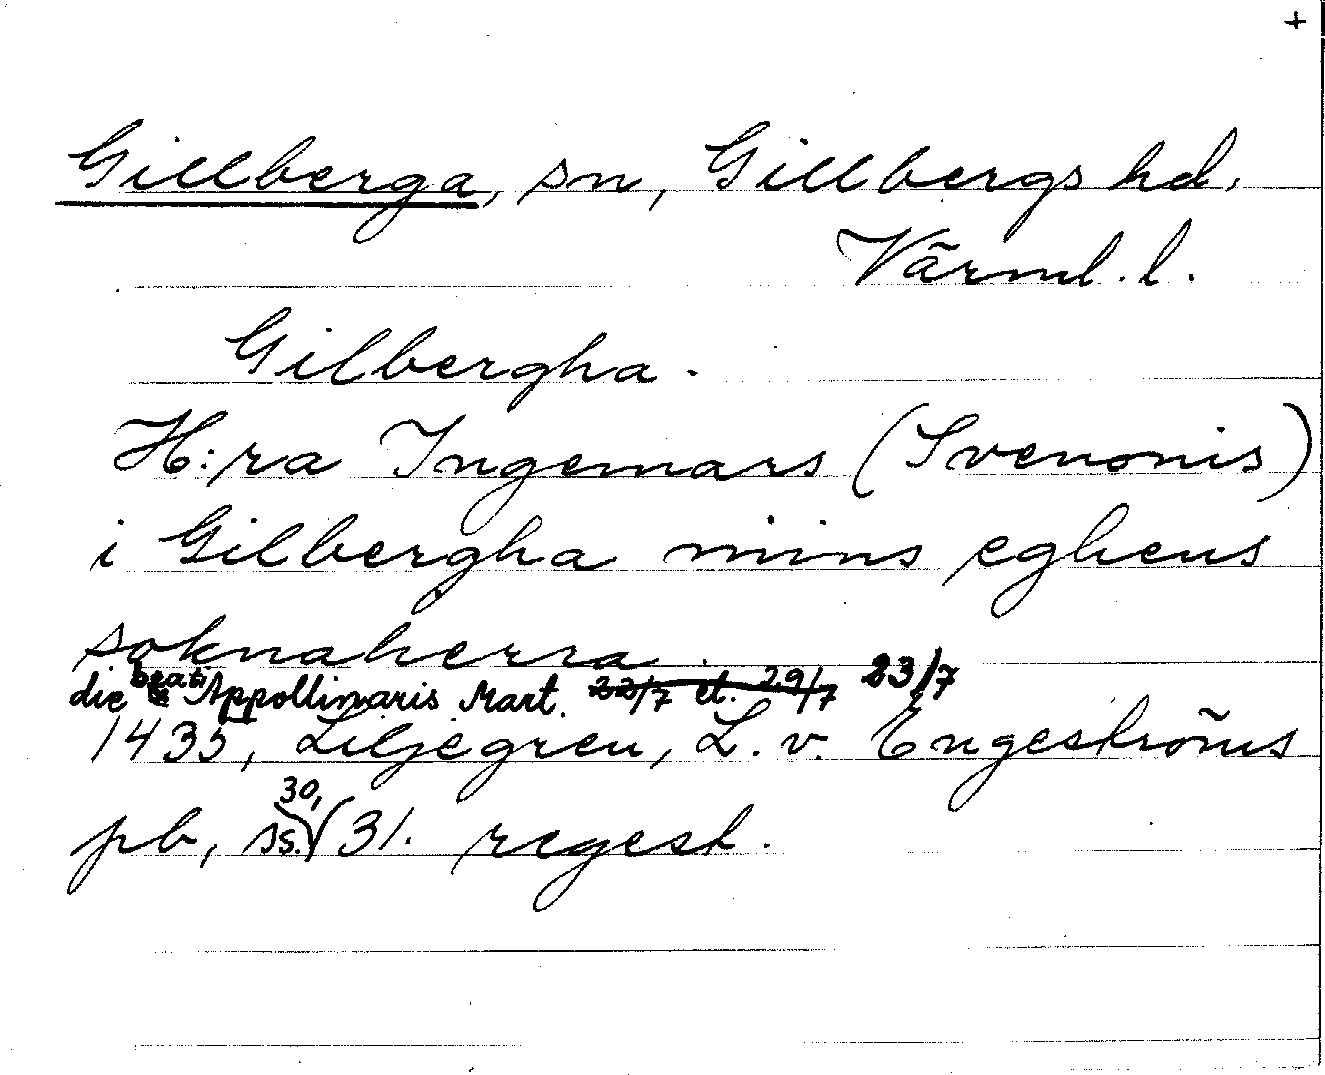 +
Gillberga, sn, Gillbergs hd,
Värml. l.
Gilbergha.
H:ra Ingemars (Svenonis)
i Gilbergha mins eghens
soknaherra.
die beati Appollinaris Mart. 22/7 el. 29/7 23/7
1435, Liljegren, L. v. Engeströms
pb, ss. 30, 31. regest.